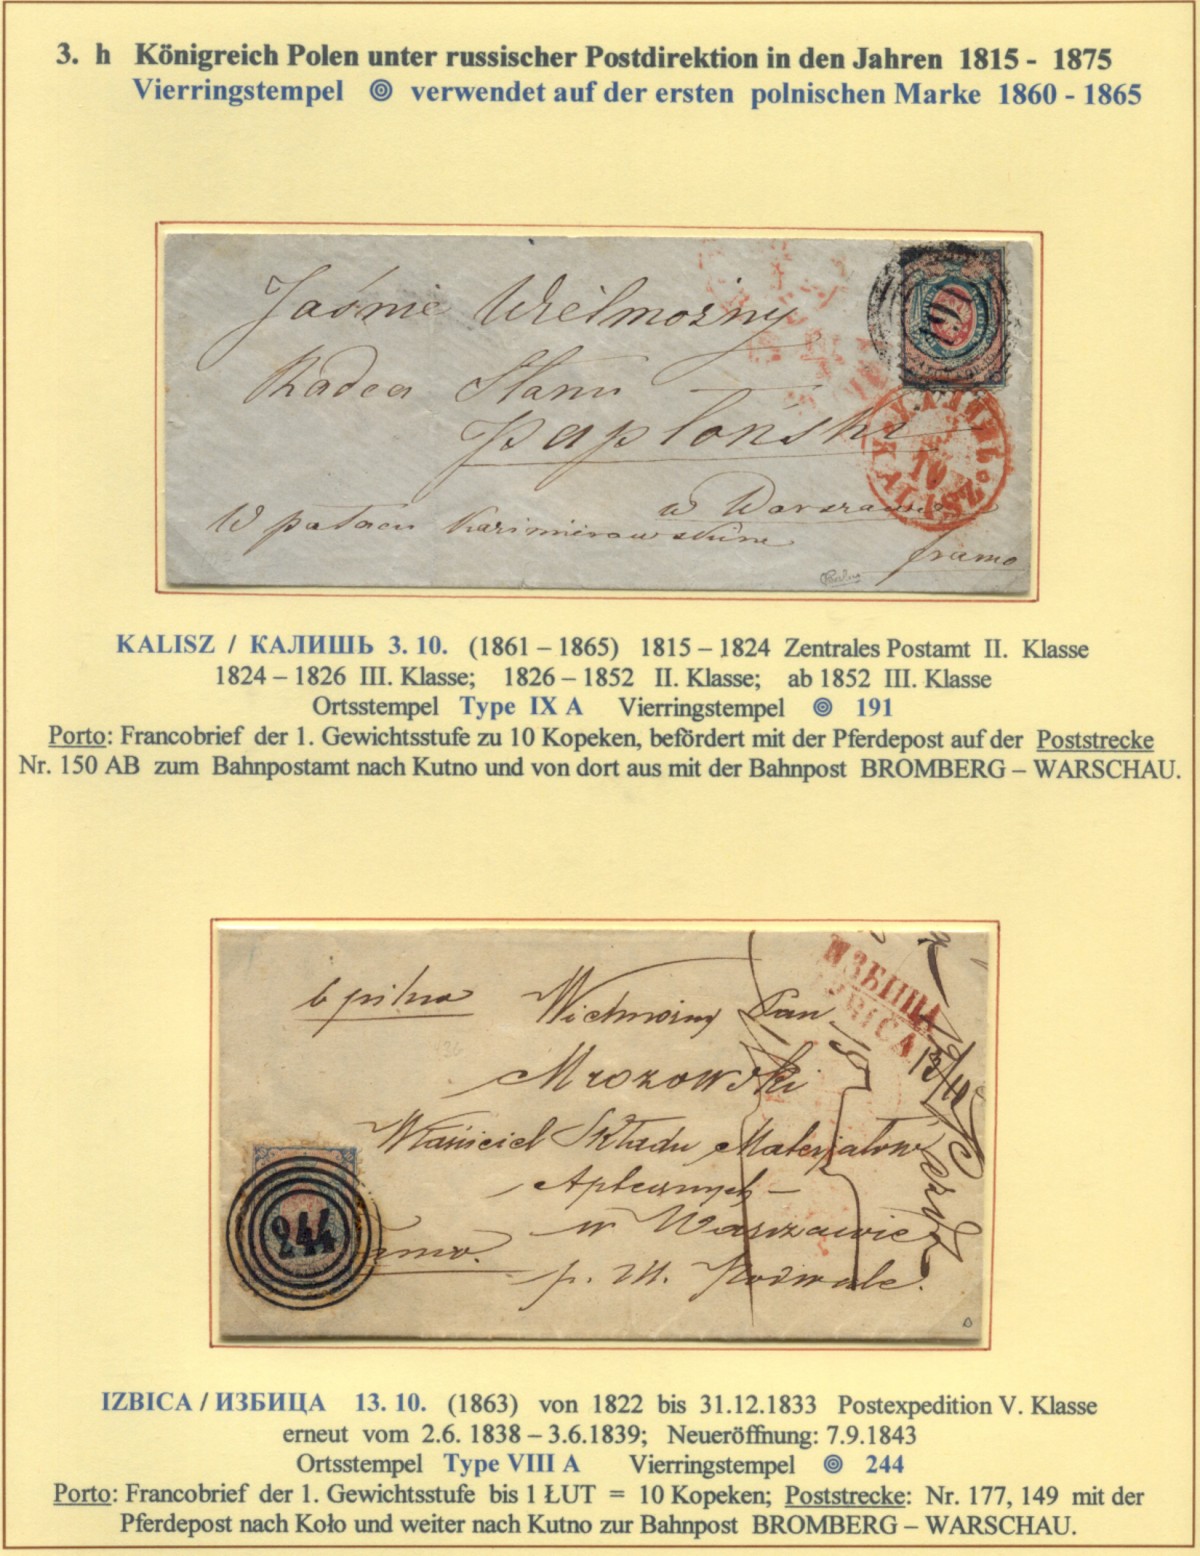 3. h Königreich Polen unter russischer Postdirektion in den Jahren 1815 - 1875
Vierringstempel verwendet auf der ersten polnischen Marke 1860 - 1865
Jaśnie Wielmożny
Radca Stanu
Papłoński
w Warszawie
W pałacu Kazimirowskim
franco
КАЛИШЬ
KALISZ
3
10
191
KALISZ / КАЛИШЬ 3. 10. (1861 – 1865) 1815 – 1824 Zentrales Postamt II. Klasse
1824 – 1826 III. Klasse; 1826 – 1852 II. Klasse; ab 1852 III. Klasse
Ortsstempel Type IX A Vierringstempel 191
Porto: Francobrief der 1. Gewichtsstufe zu 10 Kopeken, befördert mit der Pferdepost auf der Poststrecke
Nr. 150 AB zum Bahnpostamt nach Kutno und von dort aus mit der Bahnpost BROMBERG – WARSCHAU.
ИЗБИЦА
IZBICA
13/10
pilno Wielmożny Pan
Mrozowski
Właściciel Składu Materjałów
Aptecznych
w Warszawie
p. M. Podwale.
244
IZBICA / ИЗБИЦА 13. 10. (1863) von 1822 bis 31.12.1833 Postexpedition V. Klasse
erneut vom 2.6. 1838 – 3.6.1839; Neueröffnung: 7.9.1843
Ortsstempel Type VIII A Vierringstempel 244
Porto: Francobrief der 1. Gewichtsstufe bis 1 ŁUT = 10 Kopeken; Poststrecke: Nr. 177, 149 mit der
Pferdepost nach Koło und weiter nach Kutno zur Bahnpost BROMBERG – WARSCHAU.